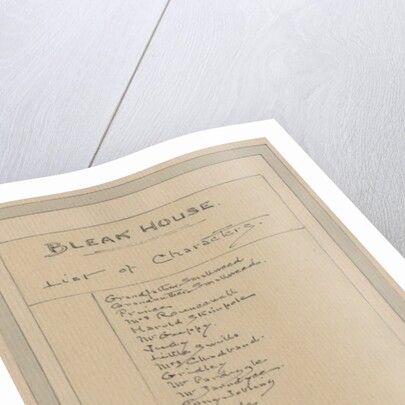 BLEAK HOUSE.
List of Characters.
Grandfather Smallweed
Grandmother Smallweed.
Princess
Mrs Rouncewell
Harold Skimpole
Mr Guppy
Judy
Little Swills
Mrs Chadband.
Gridley
Mr Pardiggle
Mr
Tony Jobling